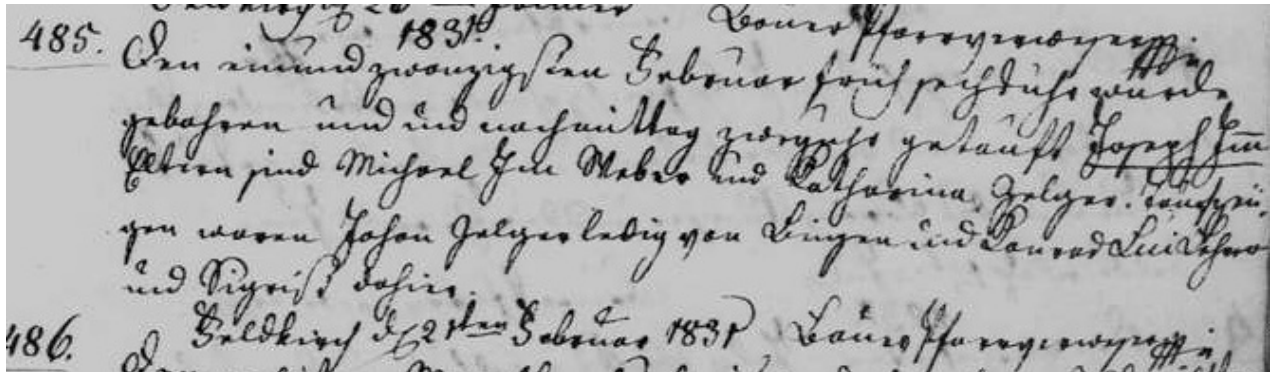 Bauer Pfarrverweser
485.
1831.
Den einund zwanzigsten Februar früh sechs uhr wurde
gebohren und und nachmittag zwey uhr getauft Joseph Im̄
Eltern sind Michael Im Weber und Katharina Zelger. Taufzeü-
gen waren Johan Zelger ledig von Bingen und Konrad Lehrer
und Sigrist dahier.
Feldkirch d 21ten Februar 1831 Bauer Pfarrverweser
486.